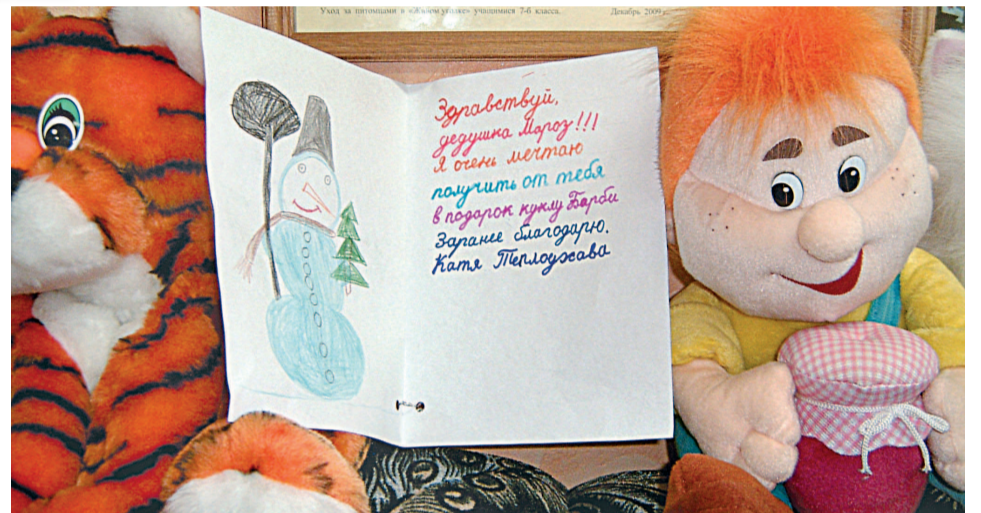 Уход за питомцами в «Живом уголке» учащимися 7-б класса. Декабрь 2009 г.
Здравствуй,
дедушка Мороз!!!
Я очень мечтаю
получить от тебя
в подарок куклу Барби
Заранее благодарю.
Катя Теплоджава